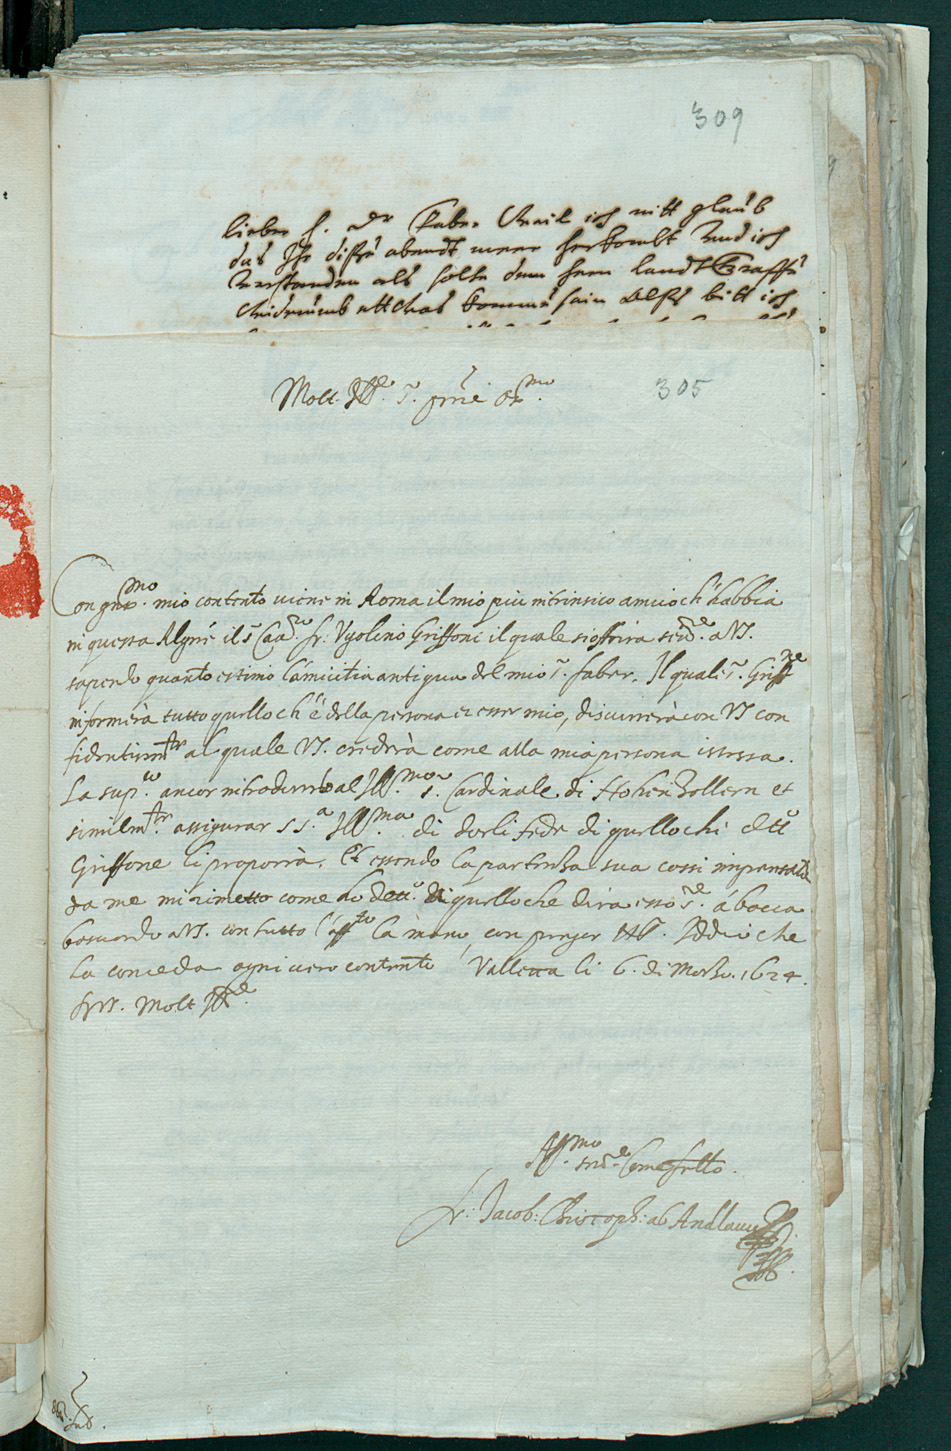 309
lieber h. Dr Faber. Weil ich nitt glaub
das Ihr disse abendt mehr herkombt und ich
verstanden als solte dem hern landtGraffen
widerumb ettwas kommen sein Alss bitt ich
Molt. Ill.re S.r
305
Con gn.mo mio contento viene in Roma il mio piu intrinsico amico ch'habbia
in questa Relig.ne il s.r Cau.ro fr: Vgolino Griffoni il quale si offrira ser.re a VS.
sapendo quanto estimo l'amicitia antiqua del mio s.r faber. Il qual s.r Griff.ne
informerà tutto quello ch'è della persona et esser mio, discurrerà con VS con
fidentissim.te al quale VS. crederà come alla mia persona istessa.
La sup.co ancor introdurrlo al Ill.mo s.r Cardinale di Hohenzollern et
similm.te assigurar S S.a Ill.ma di darli fede di quello chi detto
Griffone li proporrà. Et essendo la partenza sua cossi impensata
da me mi rimetto come ho detto di quello che dira esso s.re á bocca
basciando a VS. con tutto l'aff.to la mano, con pregar N.S. Iddio che
la conceda ogni vero contento, Valletta li 6. di Marzo. 1624.
DVS. Molt Ill.re
Aff.mo ser.re Come fr.ello
fr: Jacob: Christoph: ab Andlauw